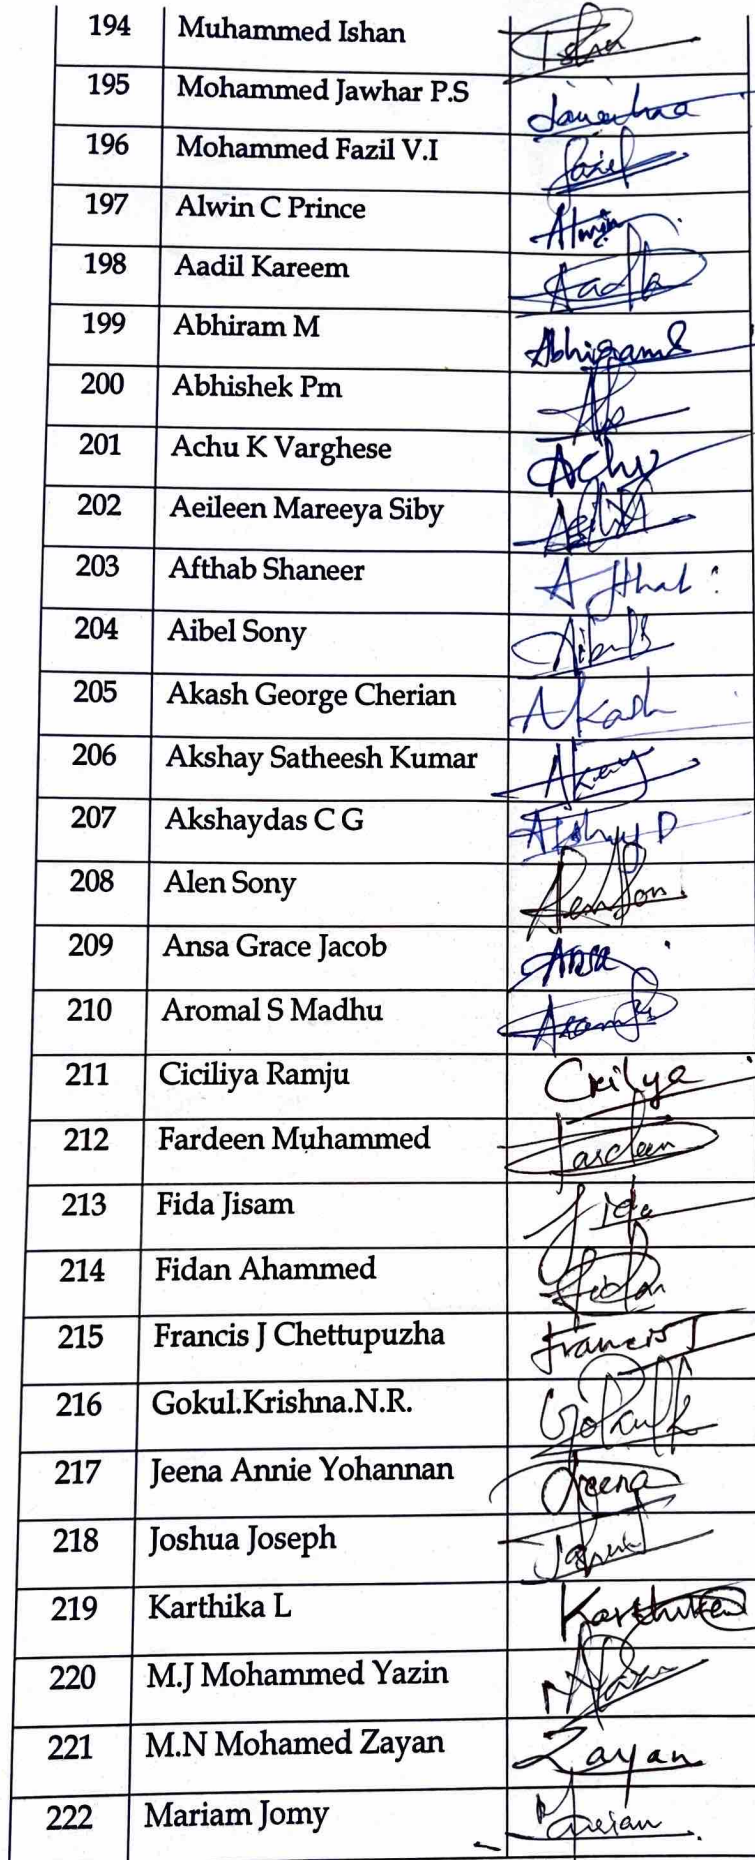 194 Muhammed Ishan
195 Mohammed Jawhar P.S
196 Mohammed Fazil V.I Fazil
197 Alwin C Prince Alwin
198 Aadil Kareem Aadil
199 Abhiram M Abhiram
200 Abhishek Pm
201 Achu K Varghese Achu
202 Aeileen Mareeya Siby
203 Afthab Shaneer Afthab
204 Aibel Sony
205 Akash George Cherian Akash
206 Akshay Satheesh Kumar
207 Akshaydas C G
208 Alen Sony
209 Ansa Grace Jacob Ansa
210 Aromal S Madhu
211 Ciciliya Ramju
212 Fardeen Muhammed Fardeen
213 Fida Jisam Fida
214 Fidan Ahammed Fidan
215 Francis J Chettupuzha Francis J
216 Gokul.Krishna.N.R.
217 Jeena Annie Yohannan Jeena
218 Joshua Joseph
219 Karthika L
220 M.J Mohammed Yazin
221 M.N Mohamed Zayan Zayan
222 Mariam Jomy